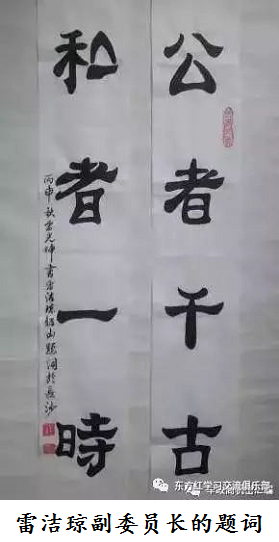 公者千古
私者一時
丙申秋雷光坤書雷洁瓊韶山題詞於長沙
东方红学习交流俱乐部
雷洁琼副委员长的题词